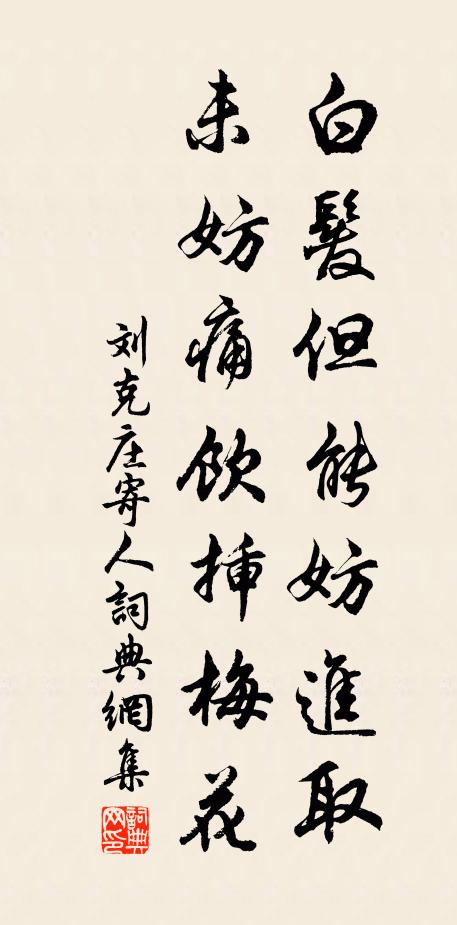 白髮但能妨進取
未妨痛飲挿梅花
刘克庄寄人詞典網集
詞典网印